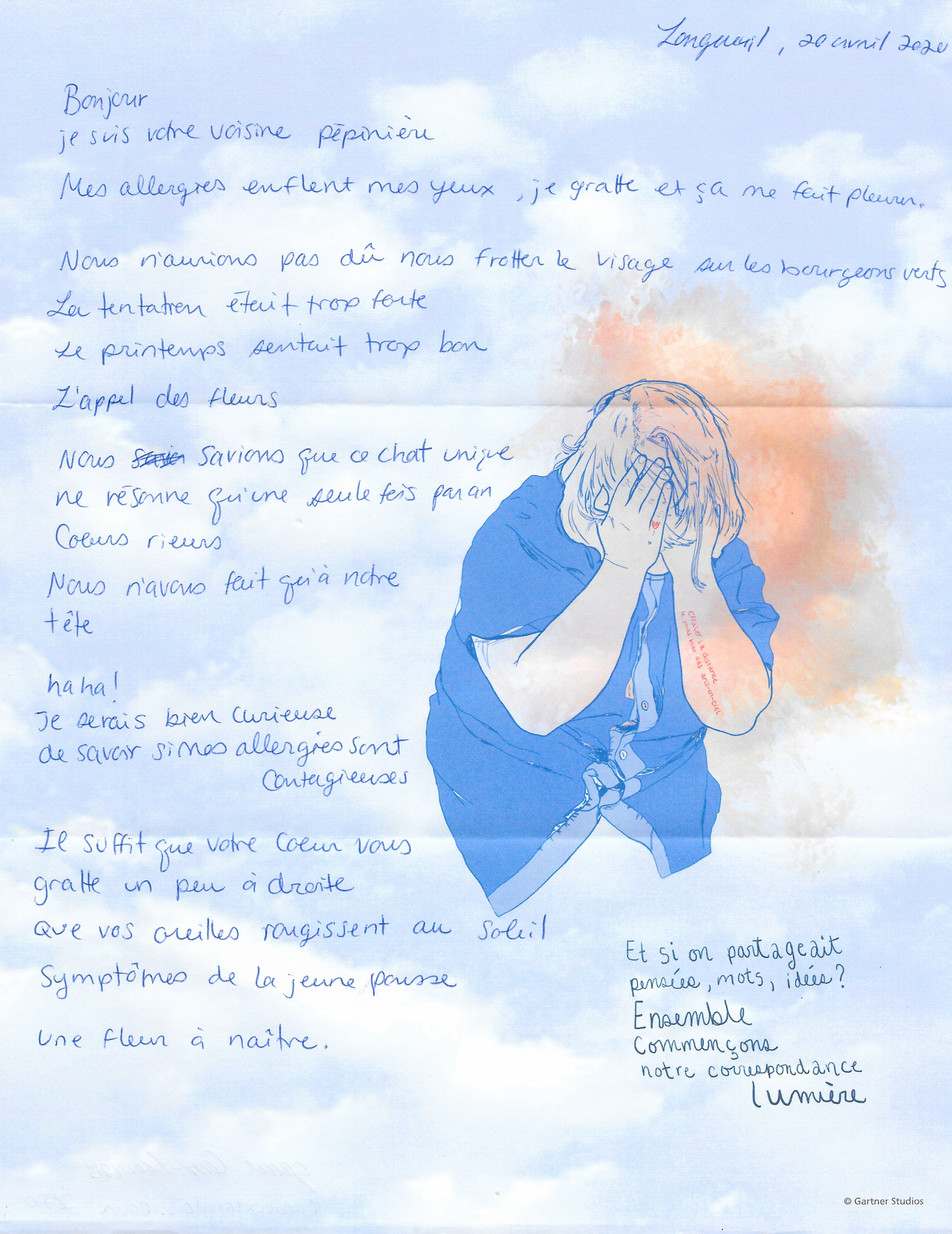 Longueuil, 20 avril 2020
Bonjour
je suis votre voisine pépinière
Mes allergies enflent mes yeux, je gratte et ça me fait pleurer.
Nous n'aurions pas dû nous frotter le visage sur les bourgeons verts
La tentation était trop forte
Le printemps sentait trop bon
L'appel des fleurs
Nous savions que ce chat unique
ne résonne qu'une seule fois par an
Coeurs rieurs
Nous n'avons fait qu'à notre
tête
haha!
Je serais bien curieuse
de savoir si mes allergies sont
Contagieuses
Il suffit que votre Coeur vous
gratte un peu à droite
Que vos oreilles rougissent au Soleil
Symptômes de la jeune pousse
Une fleur à naître.
Et si on partageait
pensées, mots, idées?
Ensemble
Commençons
notre correspondance
lumière
© Gartner Studios